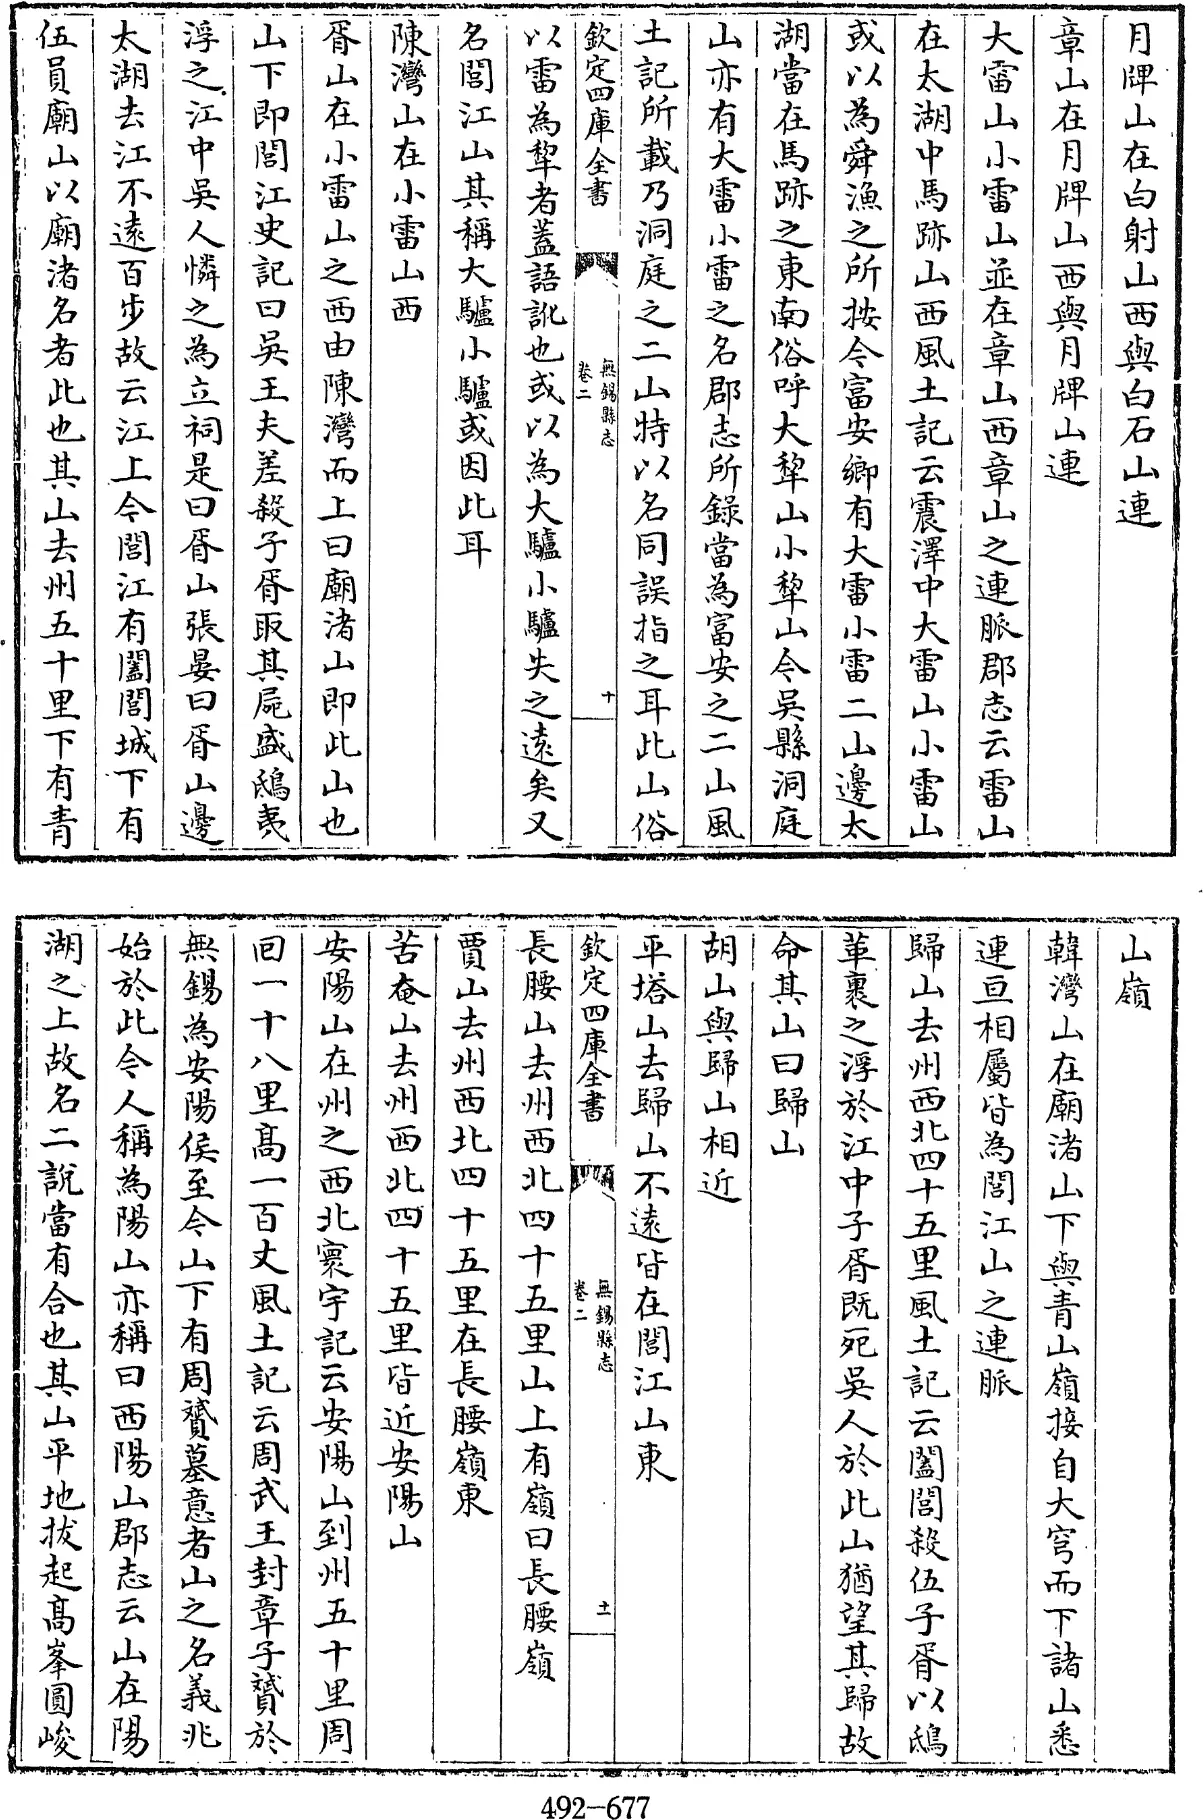 月牌山在白射山西與白石山連
章山在月牌山西與月牌山連
大雷山小雷山並在章山西章山之連脈郡志云雷山
在太湖中馬跡山西風土記云震澤中大雷山小雷山
或以為舜漁之所按今富安鄉有大雷小雷二山邊太
湖當在馬跡之東南俗呼大犂山小犂山今吳縣洞庭
山亦有大雷小雷之名郡志所錄當為富安之二山風
土記所載乃洞庭之二山特以名同誤指之耳此山俗
欽定四庫全書
無錫縣志
卷二
十
以雷為犂者蓋語訛也或以為大驢小驢失之遠矣又
名閭江山其稱大驢小驢或因此耳
陳灣山在小雷山西
胥山在小雷山之西由陳灣而上曰廟渚山即此山也
山下即閭江史記曰吳王夫差殺子胥取其屍盛鴟夷
浮之江中吳人憐之為立祠是曰胥山張晏曰胥山邊
太湖去江不遠百步故云江上今閭江有闔閭城下有
伍員廟山以廟渚名者此也其山去州五十里下有青
山嶺
韓灣山在廟渚山下與青山嶺接自大穹而下諸山悉
連亘相屬皆為閭江山之連脈
歸山去州西北四十五里風土記云闔閭殺伍子胥以鴟
革裹之浮於江中子胥既死吳人於此山猶望其歸故
命其山曰歸山
胡山與歸山相近
平塔山去歸山不遠皆在閭江山東
欽定四庫全書
無錫縣志
卷二
十一
長腰山去州西北四十五里山上有嶺曰長腰嶺
賈山去州西北四十五里在長腰嶺東
苦奄山去州西北四十五里皆近安陽山
安陽山在州之西北寰宇記云安陽山到州五十里周
回一十八里高一百丈風土記云周武王封章子贇於
無錫為安陽侯至今山下有周贇墓意者山之名義兆
始於此今人稱為陽山亦稱曰西陽山郡志云山在陽
湖之上故名二說當有合也其山平地拔起高峯圓峻
492-677